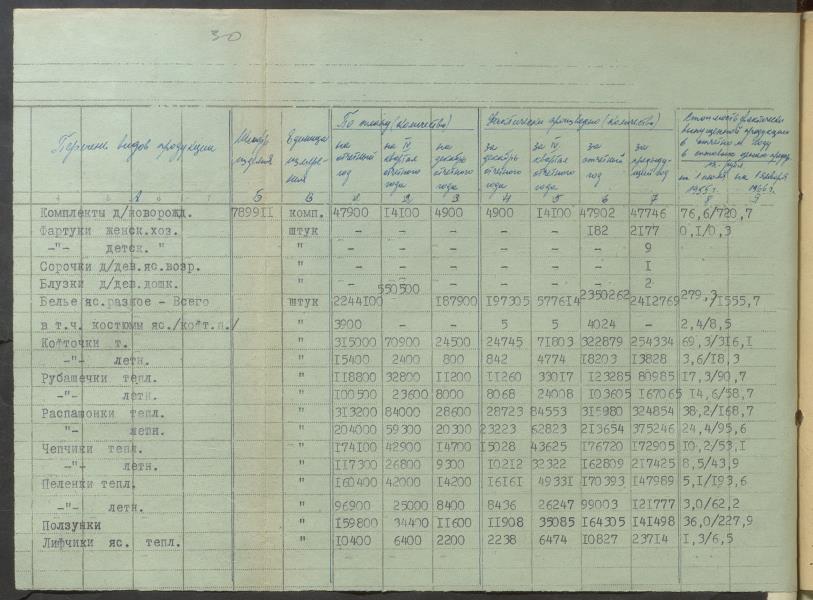 30
По плану (количество) Фактически произведено (количество) Стоимость фактически
Перечень видов продукции Шифр изделия Единица измерения на отчетный год на IV квартал отчетного года на декабрь отчетного года за декабрь отчетного года за IV квартал отчетного года за отчетный год за предыдущий год выпущенной продукции в отчетном году в оптовых ценах на 1 июля 1955 г. на 1 января 1966 г.
А Б В 1 2 3 4 5 6 7 8 9
Комплекты д/новорожд. 789911 комп. 47900 14100 4900 4900 14100 47902 47746 76,6/720,7
Фартуки женск.хоз. штук - - - - - 182 2177 0,1/0,3
-"- детск. " " - - - - - - 9
Сорочки д/дев.яс.возр. " - - - - - - 1
Блузки д/дев.дошк. " - - - - - - 2
Белье яс.разное - Всего штук 2244100 550500 187900 197305 577614 2350262 2412769 279,3/1555,7
в т.ч. костюмы яс./кофт.п./ " 3900 - - 5 5 4024 - 2,4/8,5
Кофточки т. " 315000 70900 24500 24745 71803 322879 254334 69,3/316,1
-"- летн. " 15400 2400 800 842 4774 18203 13828 3,6/18,3
Рубашечки тепл. " 118800 32800 11200 11260 33017 123285 80985 17,3/90,7
-"- летн. " 100500 23600 8000 8068 24008 103605 167065 14,6/58,7
Распашонки тепл. " 313200 84000 28600 28723 84553 315980 324854 38,2/168,7
"- летн. " 204000 59300 20300 23223 62823 213654 375246 24,4/95,6
Чепчики тепл. " 174100 42900 14700 15028 43625 176720 172905 10,2/53,1
-"- летн. " 117300 26800 9300 10212 32322 162809 217425 8,5/43,9
Пеленки тепл. " 160400 42000 14200 16161 49331 170393 147989 5,1/193,6
-"- летн. " 96900 25000 8400 8436 26247 99003 121777 3,0/62,2
Ползунки " 159800 34400 11600 11908 35085 164305 141498 36,0/227,9
Лифчики яс. тепл. " 10400 6400 2200 2238 6474 10827 23714 1,3/6,5